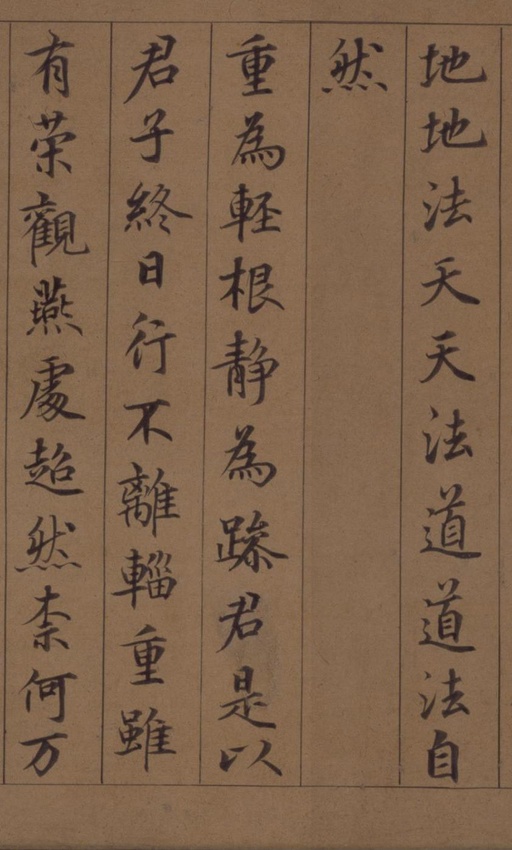 地地法天天法道道法自
然
重為軽根静為躁君是以
君子終日行不離輜重雖
有荣觀燕處超然柰何万